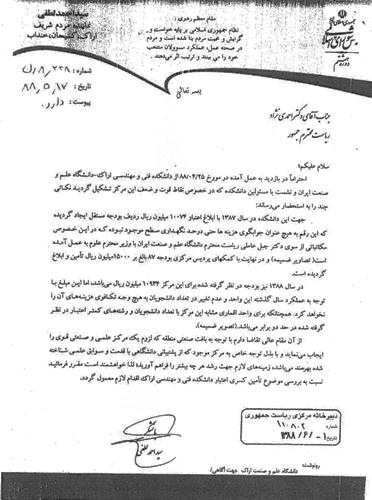 سید احمد لطفی
نماینده مردم شریف
اراک، کمیجان، خنداب
مقام معظم رهبری:
نظام جمهوری اسلامی بر پایه خواست و
گرایش و محبت مردم بنا شده است و مردم
در صحنه عمل، عملکرد مسوولان منتخب
خود را می بینند و ترتیب اثر می دهند.
دوره هشتم
شماره:
تاریخ: ۸۸,۵,۱۷
پیوست: دارد
بسمه تعالی
جناب آقای دکتر احمدی نژاد
ریاست محترم جمهور
سلام علیکم؛
احتراماً در بازدید به عمل آمده در مورخ ۸۸/۰۴/۲۵ از دانشکده فنی و مهندسی اراک-دانشگاه علم و
صنعت ایران و نشست با مسئولین دانشکده که در خصوص نقاط قوت و ضعف این مرکز تشکیل گردید نکاتی
چند را به استحضار می‌رساند:
جهت این دانشکده در سال ۱۳۸۷ با ابلاغ اعتبار ۱۰۰۷۴ میلیون ریال ردیف بودجه مستقل ایجاد گردیده
که این رقم به هیچ عنوان جوابگوی هزینه ها حتی در حد نگهداری سطح موجود نبوده که در این خصوص
مکاتباتی از سوی دکتر جبل عاملی ریاست محترم دانشگاه علم و صنعت ایران با وزیر محترم علوم به عمل آمده
است (تصاویر ضمیمه) و در نهایت با کمکهای پردیس مرکزی بودجه ۸۷ بالغ بر ۱۵۰۰۰ میلیون ریال تأمین و ابلاغ
گردیده است.
در سال ۱۳۸۸ نیز بودجه در نظر گرفته شده برای این مرکز ۱۰۹۳۴ میلیون ریال می‌باشد، اما این مبلغ با
توجه به عملکرد سال گذشته این واحد و عدم تغییر در تعداد دانشجویان به هیچ وجه تکافوی هزینه‌های آن را
نخواهد کرد. همچنانکه برای واحد اقماری مشابه این مرکز با تعداد دانشجویان و رشته‌های کمتر اعتبار در نظر
گرفته شده در حد دو برابر می‌باشد. (تصویر ضمیمه).
از آن مقام عالی تقاضا دارم با توجه به بافت صنعتی منطقه که لزوم یک مرکز علمی و صنعتی قوی را
ایجاب می‌نماید و با بذل توجه خاص به مرکز موجود که از پشتیبانی دانشگاهی با قدمت و سوابق علمی شناخته
شده بهره‌مند می‌باشد، زمینه‌های لازم جهت رشد هر چه بیشتر را فراهم آورید؛ لذا خواهشمند است مقرر فرمائید
نسبت به بررسی موضوع تأمین کسری اعتبار دانشکده فنی و مهندسی اراک اقدام لازم معمول گردد.
سید احمد لطفی
دبیرخانه مرکزی ریاست جمهوری
۱۱۰۸۰۲
تاریخ ۱ - /۶/ ۱۳۸۸
رونوشت:
دانشگاه علم و صنعت اراک جهت آگاهی/